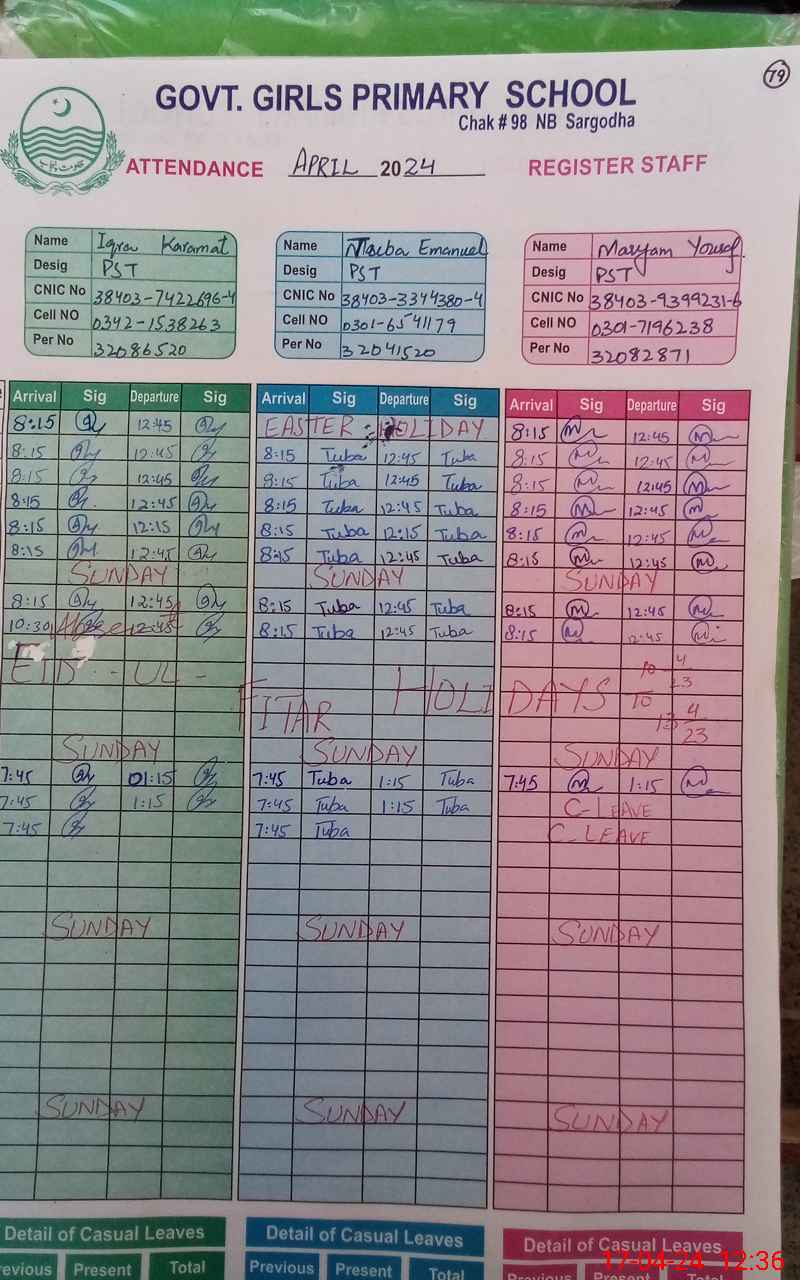 79
GOVT. GIRLS PRIMARY SCHOOL
Chak # 98 NB Sargodha
ATTENDANCE APRIL 2024 REGISTER STAFF
Name Iqra Karamat Name Name Maryam Yousaf.
Desig PST Desig PST Desig PST
CNIC No 38403-7422696-4 CNIC No 38403-3344380-4 CNIC No 38403-9399231-6
Cell NO 0342-1538263 Cell NO 0301-6541179 Cell NO 0301-7196238
Per No 32086520 Per No 32041520 Per No 32082871
Arrival Sig Departure Sig Arrival Sig Departure Sig Arrival Sig Departure Sig
8:15 12:45 EASTER HOLIDAY 8:15 12:45
8:15 12:45 8:15 Tuba 12:45 Tuba 8:15 12:45
8:15 12:45 8:15 Tuba 12:45 Tuba 8:15 12:45
8:15 12:45 8:15 Tuba 12:45 Tuba 8:15 12:45
8:15 12:15 8:15 Tuba 12:15 Tuba 8:15 12:45
8:15 12:45 8:15 Tuba 12:45 Tuba 8:15 12:45
SUNDAY SUNDAY SUNDAY
8:15 12:45 8:15 Tuba 12:45 Tuba 8:15 12:45
10:30 12:45 8:15 Tuba 12:45 Tuba 8:15 12:45
EID - UL - FITAR HOLIDAYS 10 4 23 TO 13 4 23
SUNDAY SUNDAY SUNDAY
7:45 01:15 7:45 Tuba 1:15 Tuba 7:45 1:15
7:45 1:15 7:45 Tuba 1:15 Tuba C-LEAVE
7:45 7:45 Tuba C-LEAVE
SUNDAY SUNDAY SUNDAY
SUNDAY SUNDAY SUNDAY
Detail of Casual Leaves Detail of Casual Leaves Detail of Casual Leaves
Previous Present Total Previous Present Total Previous Present Total
17-04-24 12:36